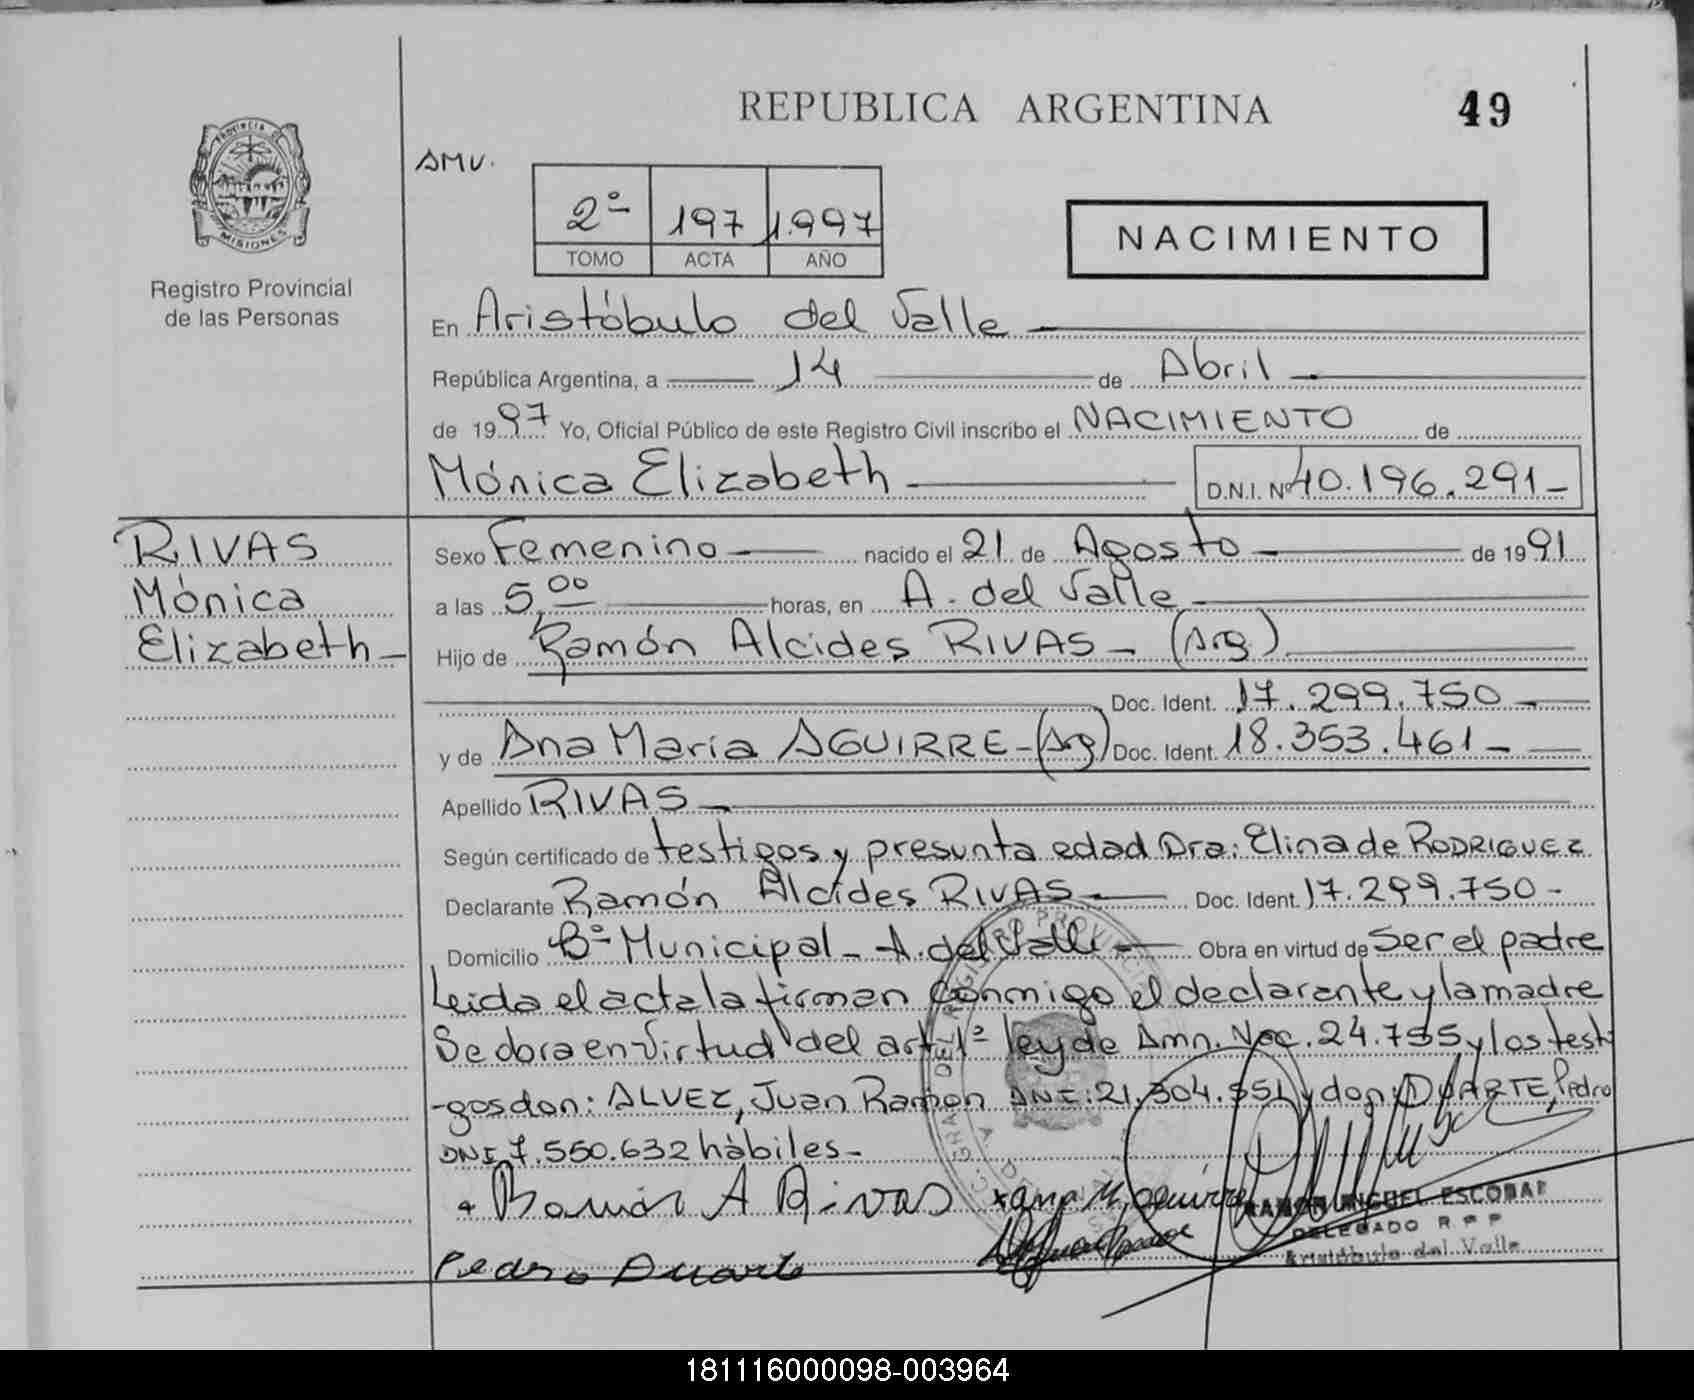 REPUBLICA ARGENTINA
49
PROVINCIA DE
MISIONES
Registro Provincial
de las Personas
AMV.
2º 197 1.997
TOMO ACTA AÑO
NACIMIENTO
En Aristóbulo del Valle
República Argentina, a 14 de Abril
de 1997 Yo, Oficial Público de este Registro Civil inscribo el NACIMIENTO de
Mónica Elizabeth D.N.I. Nº 40.196.291-
RIVAS
Mónica
Elizabeth-
Sexo Femenino nacido el 21 de Agosto de 1991
a las 5,00 horas, en A. del Valle
Hijo de Ramón Alcides RIVAS - (Arg)
Doc. Ident. 17.299.750
y de Ana María AGUIRRE - (Arg) Doc. Ident. 18.353.461-
Apellido RIVAS
Según certificado de testigos y presunta edad Dra: Elina de RODRIGUEZ
Declarante Ramón Alcides RIVAS Doc. Ident. 17.299.750-
Domicilio Bº Municipal - A. del Valle Obra en virtud de Ser el padre
Leida el acta la firman conmigo el declarante y la madre
Se obra en virtud del art. 1º ley de Amn. Nac. 24.755 y los testi
-gos don: ALVEZ, Juan Ramón DNI: 21.304.551 y don: DUARTE, Pedro
DNI 7.550.632 hábiles-
Ramón A Rivas
x ana M. aguirre
RAMON MIGUEL ESCOBAR
DELEGADO R P P
Aristóbulo del Valle
Pedro Duarte
181116000098-003964